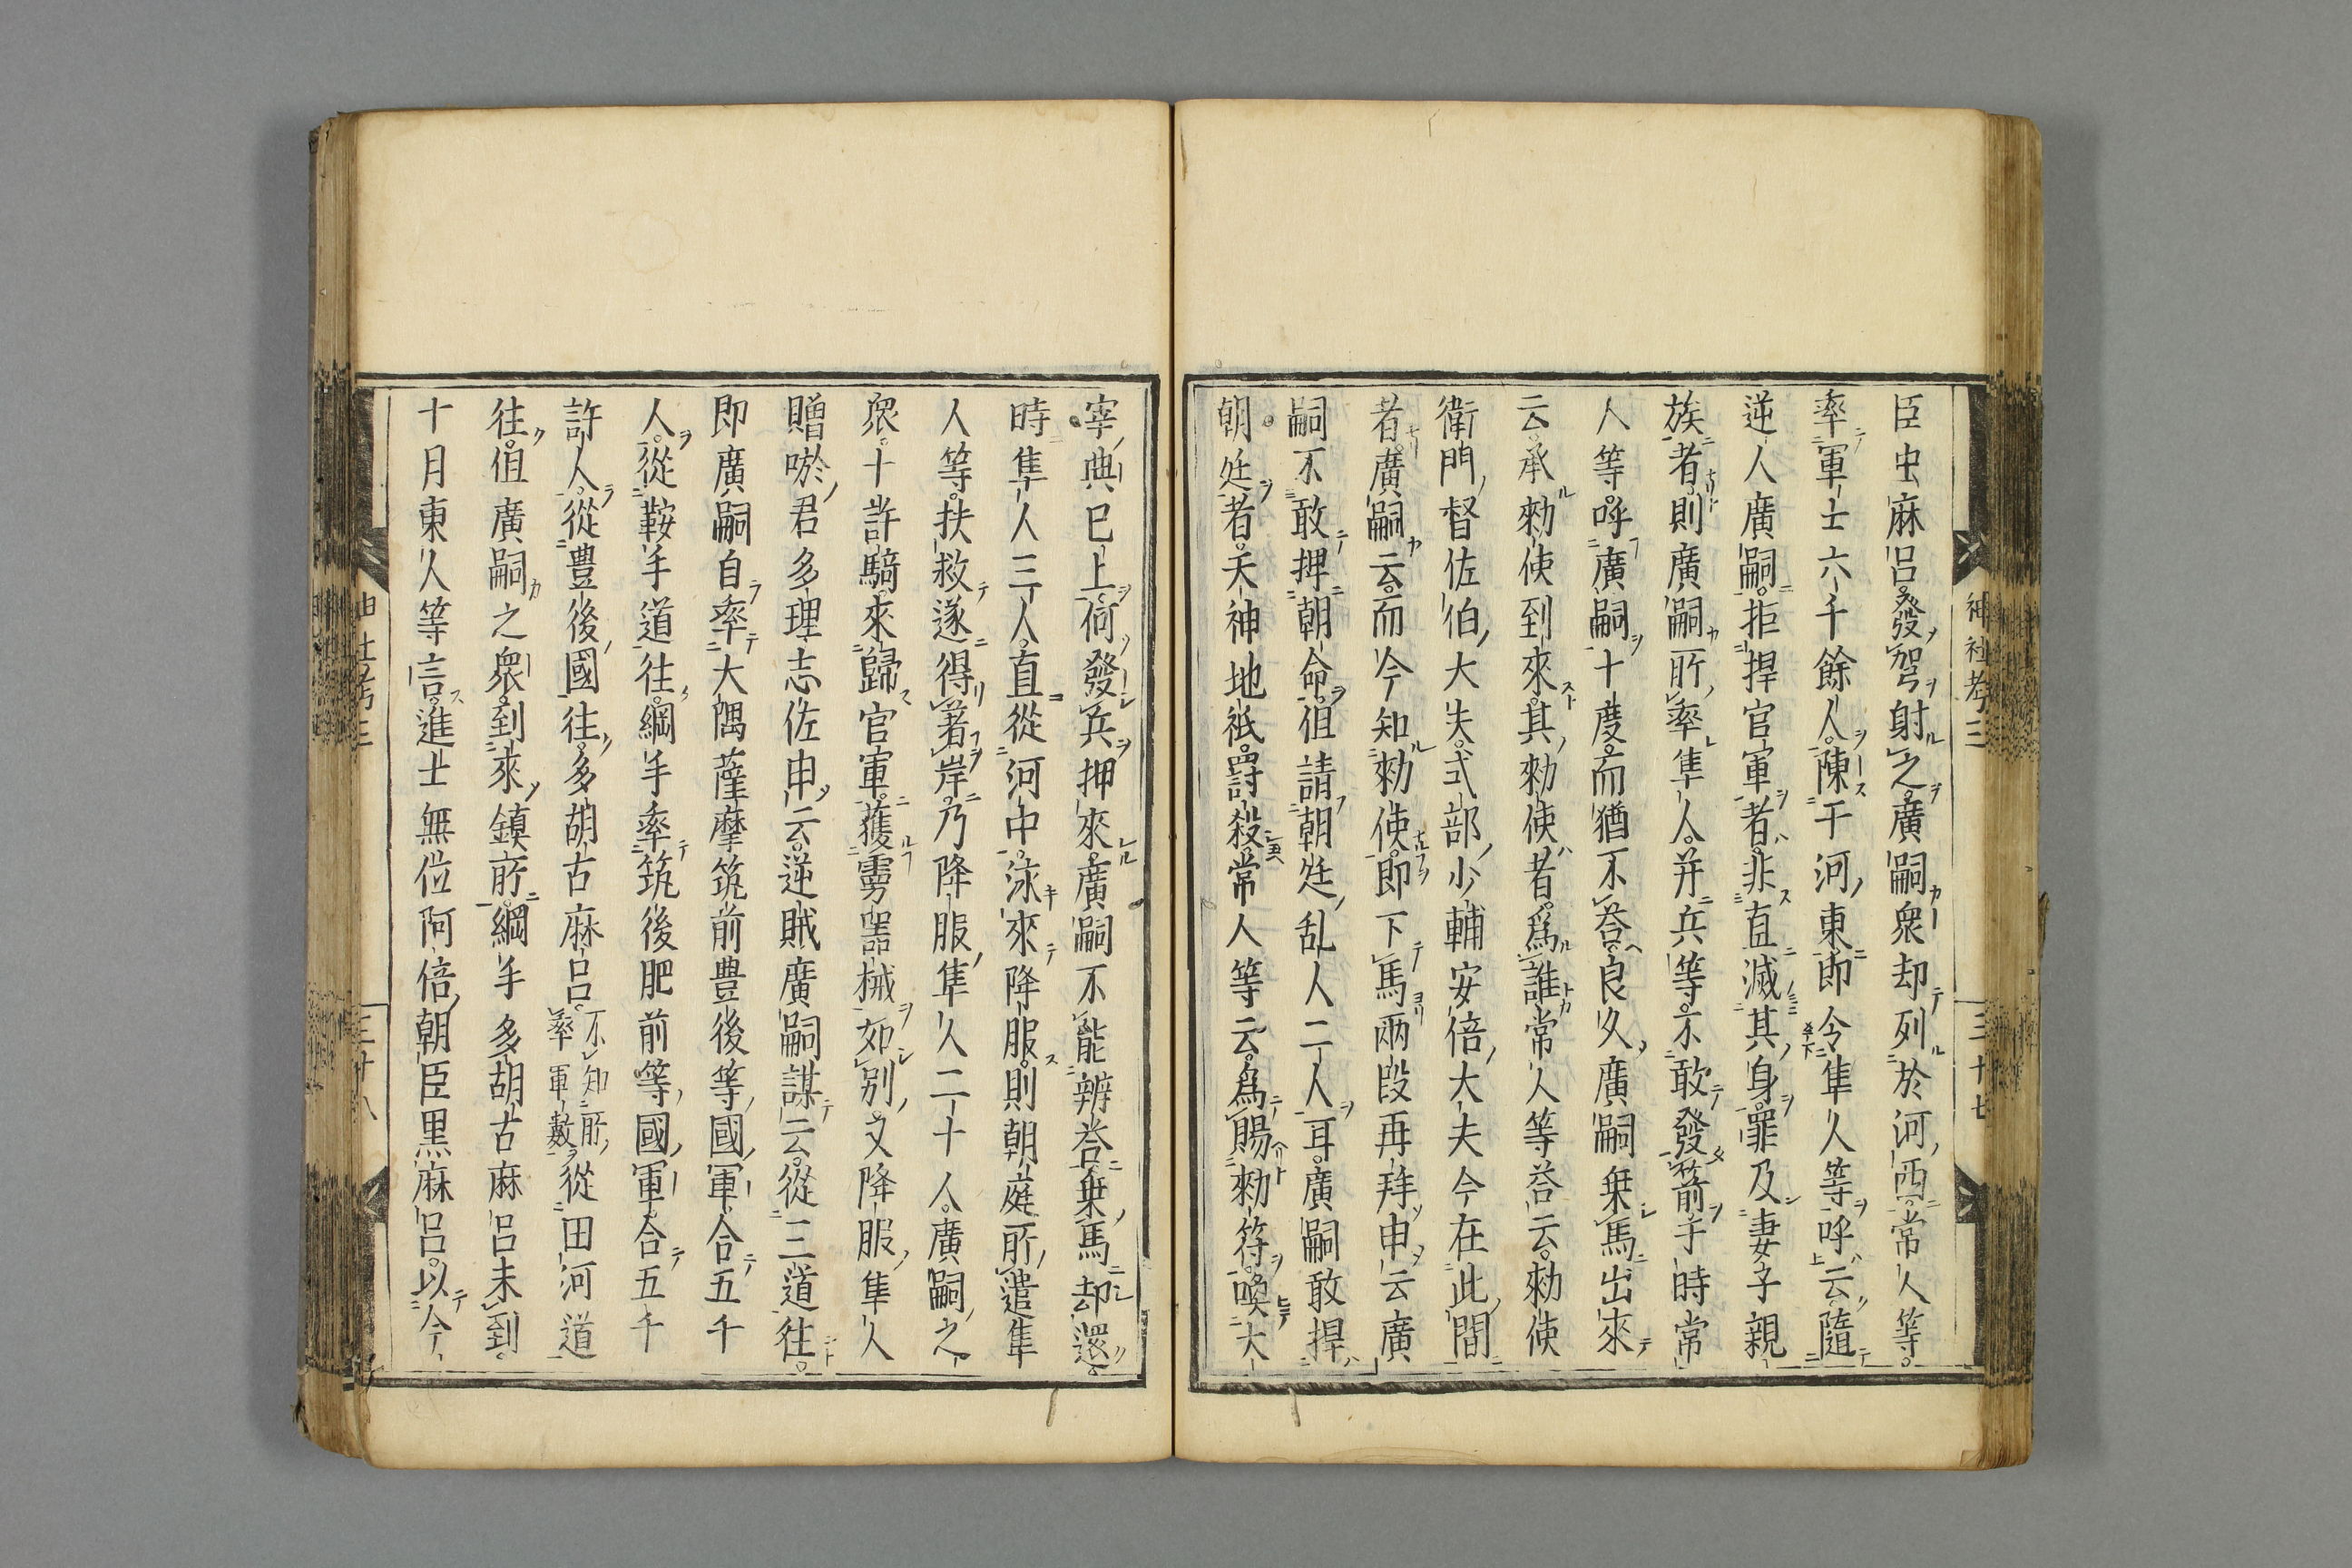 臣虫麻呂發弩射之廣嗣衆却列於河西常人等
率軍士六千餘人陳于河東即令隼人等呼云隨
逆人廣嗣拒捍官軍者非直滅其身罪及妻子親
族者則廣嗣所率隼人并兵等不敢發箭于時常
人等呼廣嗣十度而猶不荅良久廣嗣乗馬出來
云承勅使到來其勅使者爲誰常人等荅云勅使
衛門督佐伯大夫式部少輔安倍大夫今在此間
者廣嗣云而今知勅使即下馬兩段再拜申云廣
嗣不敢捍朝命但請朝廷乱人二人耳廣嗣敢捍
朝廷者天神地祇罸殺常人等云爲賜勅符喚大
神社考三
三十七
宰典已上何發兵押來廣嗣不能辨荅乗馬却還
時隼人三人直從河中泳來降服則朝庭所遣隼
人等扶救遂得著岸乃降服隼人二十人廣嗣之
衆十許騎來歸官軍獲虜器械如別又降服隼人
贈唹君多理志佐申云逆賊廣嗣謀云從三道往
即廣嗣自率大隅薩摩筑前豊後等國軍合五千
人從鞍手道往綱手率筑後肥前等國軍合五千
許人從豊後國往多胡古麻呂不知所率軍數從田河道
往但廣嗣之衆到來鎮所綱手多胡古麻呂未到
十月東人等言進士無位阿倍朝臣黒麻呂以今
三十八